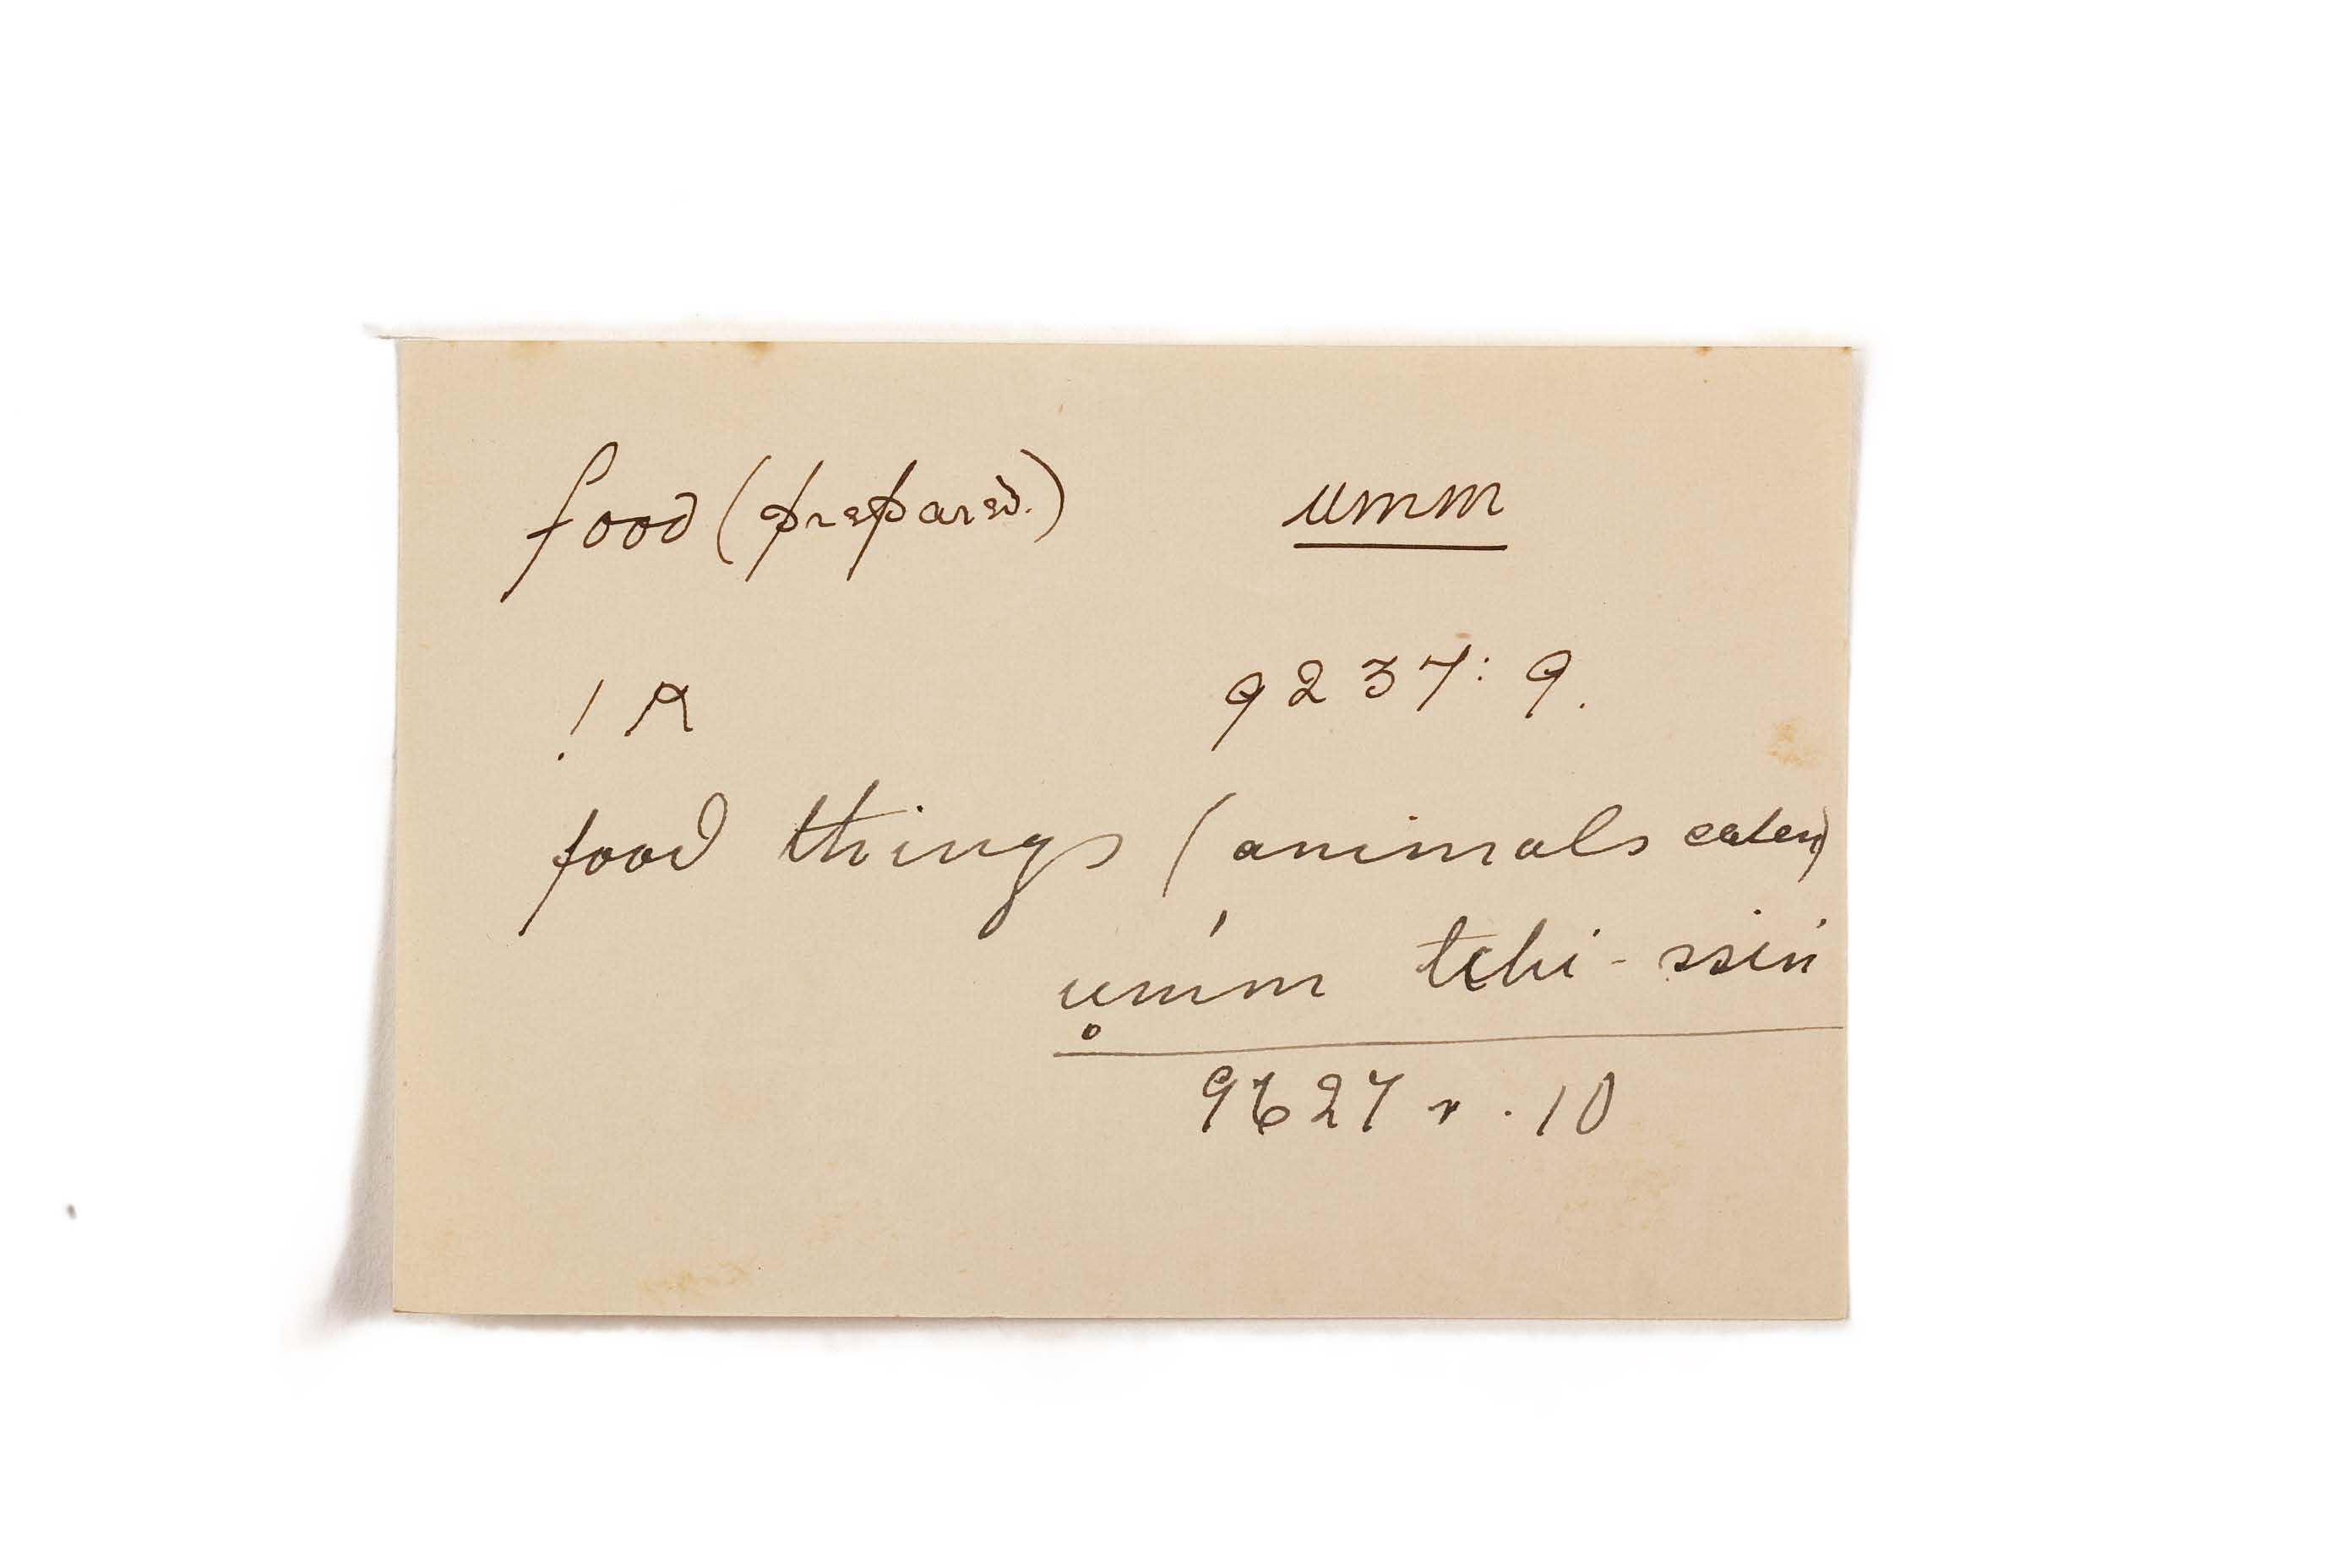 food (prepared.) umm
! R 9237: 9.
food things (animals eaten)
u̥mḿ tchi-ssiń
9627 r. 10